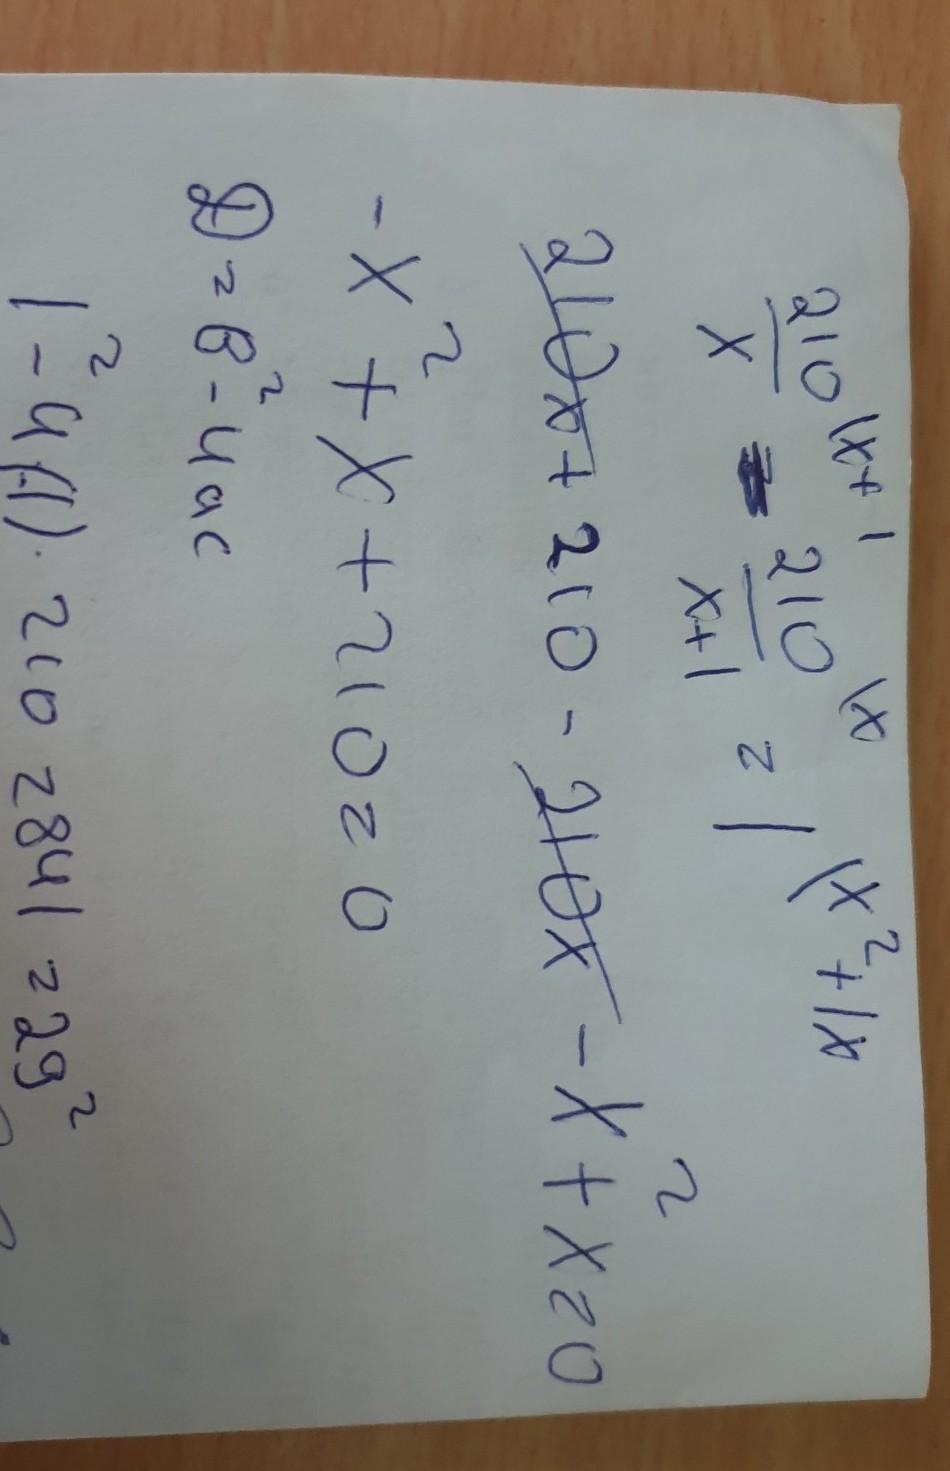 210/x \x+1 = 210/x+1 \x = 1 \x²+1x
210x + 210 - 210x - x² + x = 0
-x² + x + 210 = 0
D = b² - 4ac
1² - 4(-1) · 210 = 841 = 29²